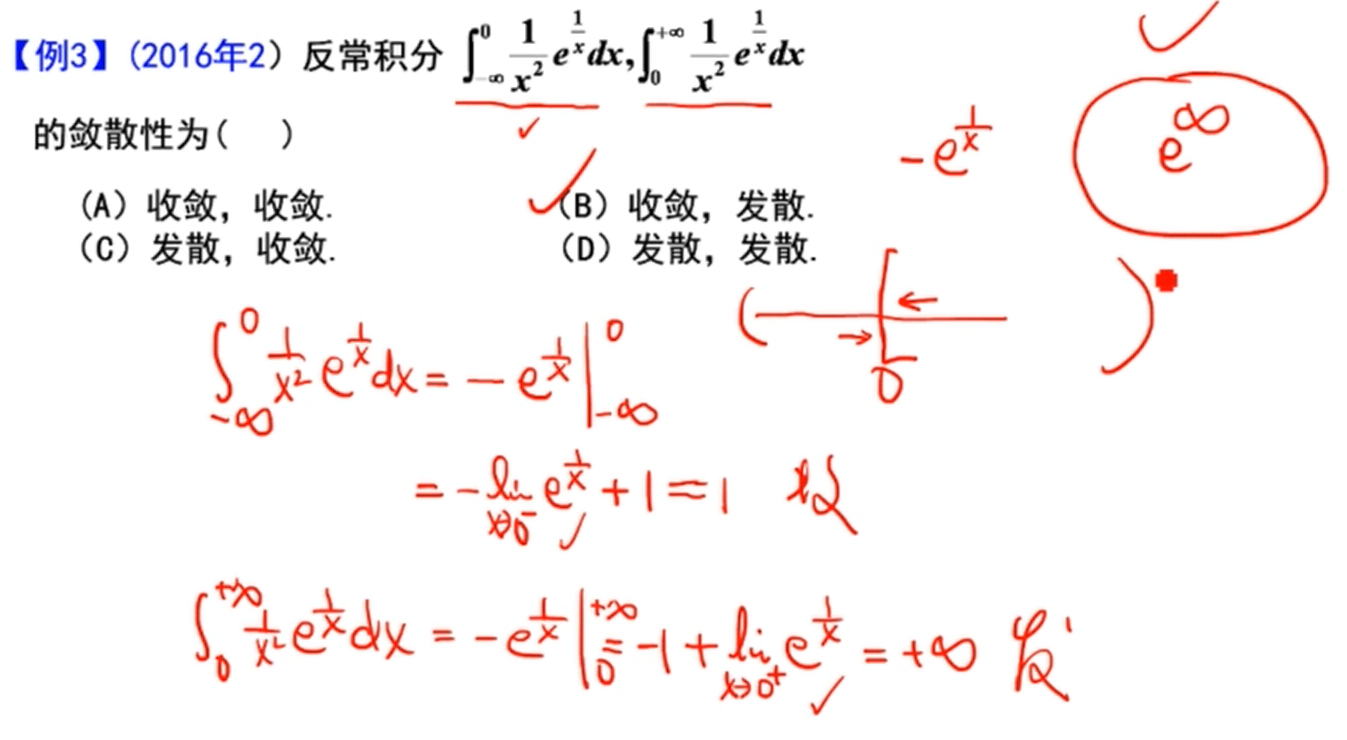 【例3】(2016年2) 反常积分 ∫_{-∞}^{0} 1/x² e^{1/x}dx, ∫_{0}^{+∞} 1/x² e^{1/x}dx
的敛散性为( )
(A) 收敛, 收敛. (B) 收敛, 发散.
(C) 发散, 收敛. (D) 发散, 发散.
-e^{1/x}
e^∞
0
∫_{-∞}^{0} 1/x² e^{1/x}dx = -e^{1/x}|_{-∞}^{0}
= -lim_{x→0⁻} e^{1/x} + 1 = 1 收
∫_{0}^{+∞} 1/x² e^{1/x}dx = -e^{1/x}|_{0}^{+∞} = -1 + lim_{x→0⁺} e^{1/x} = +∞